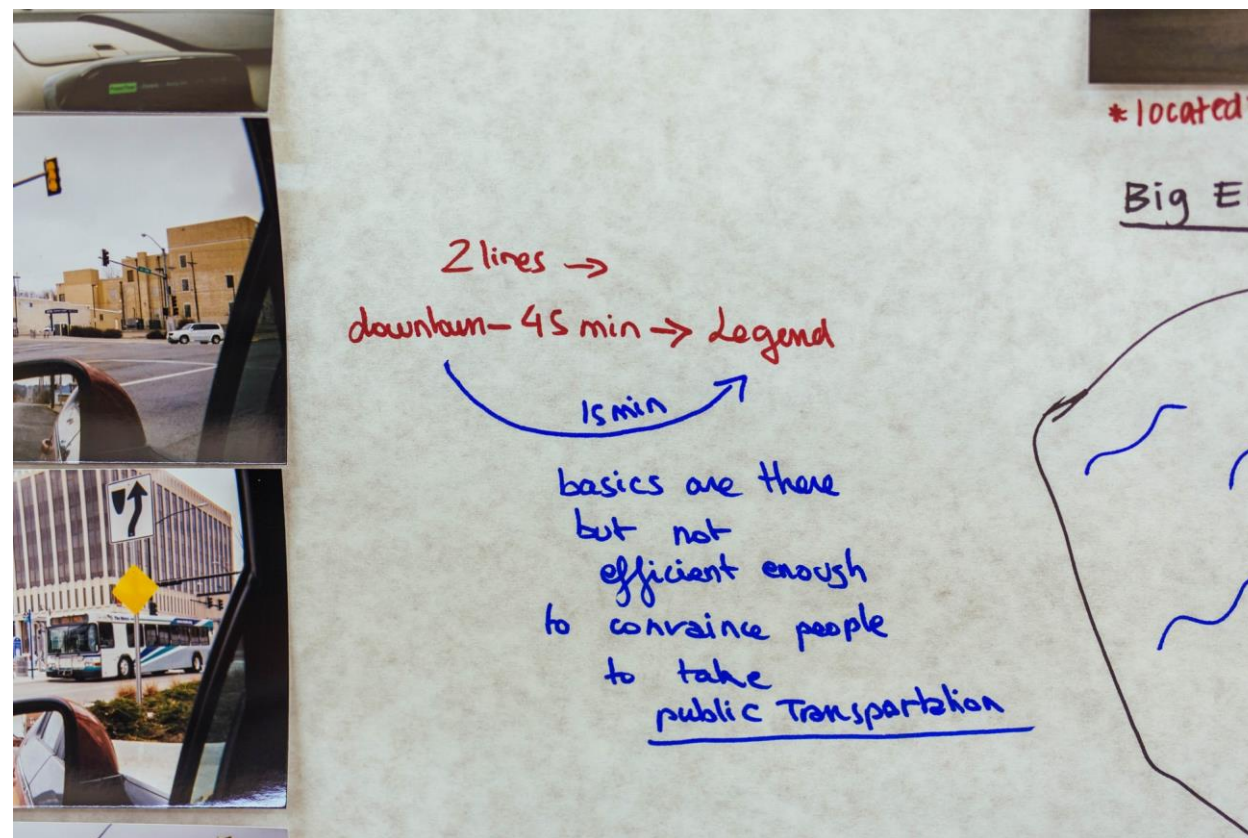 2 lines →
downtown – 45 min → Legend
15 min
basics are there
but not
efficient enough
to convaince people
to take
public Transportation
* located
Big E